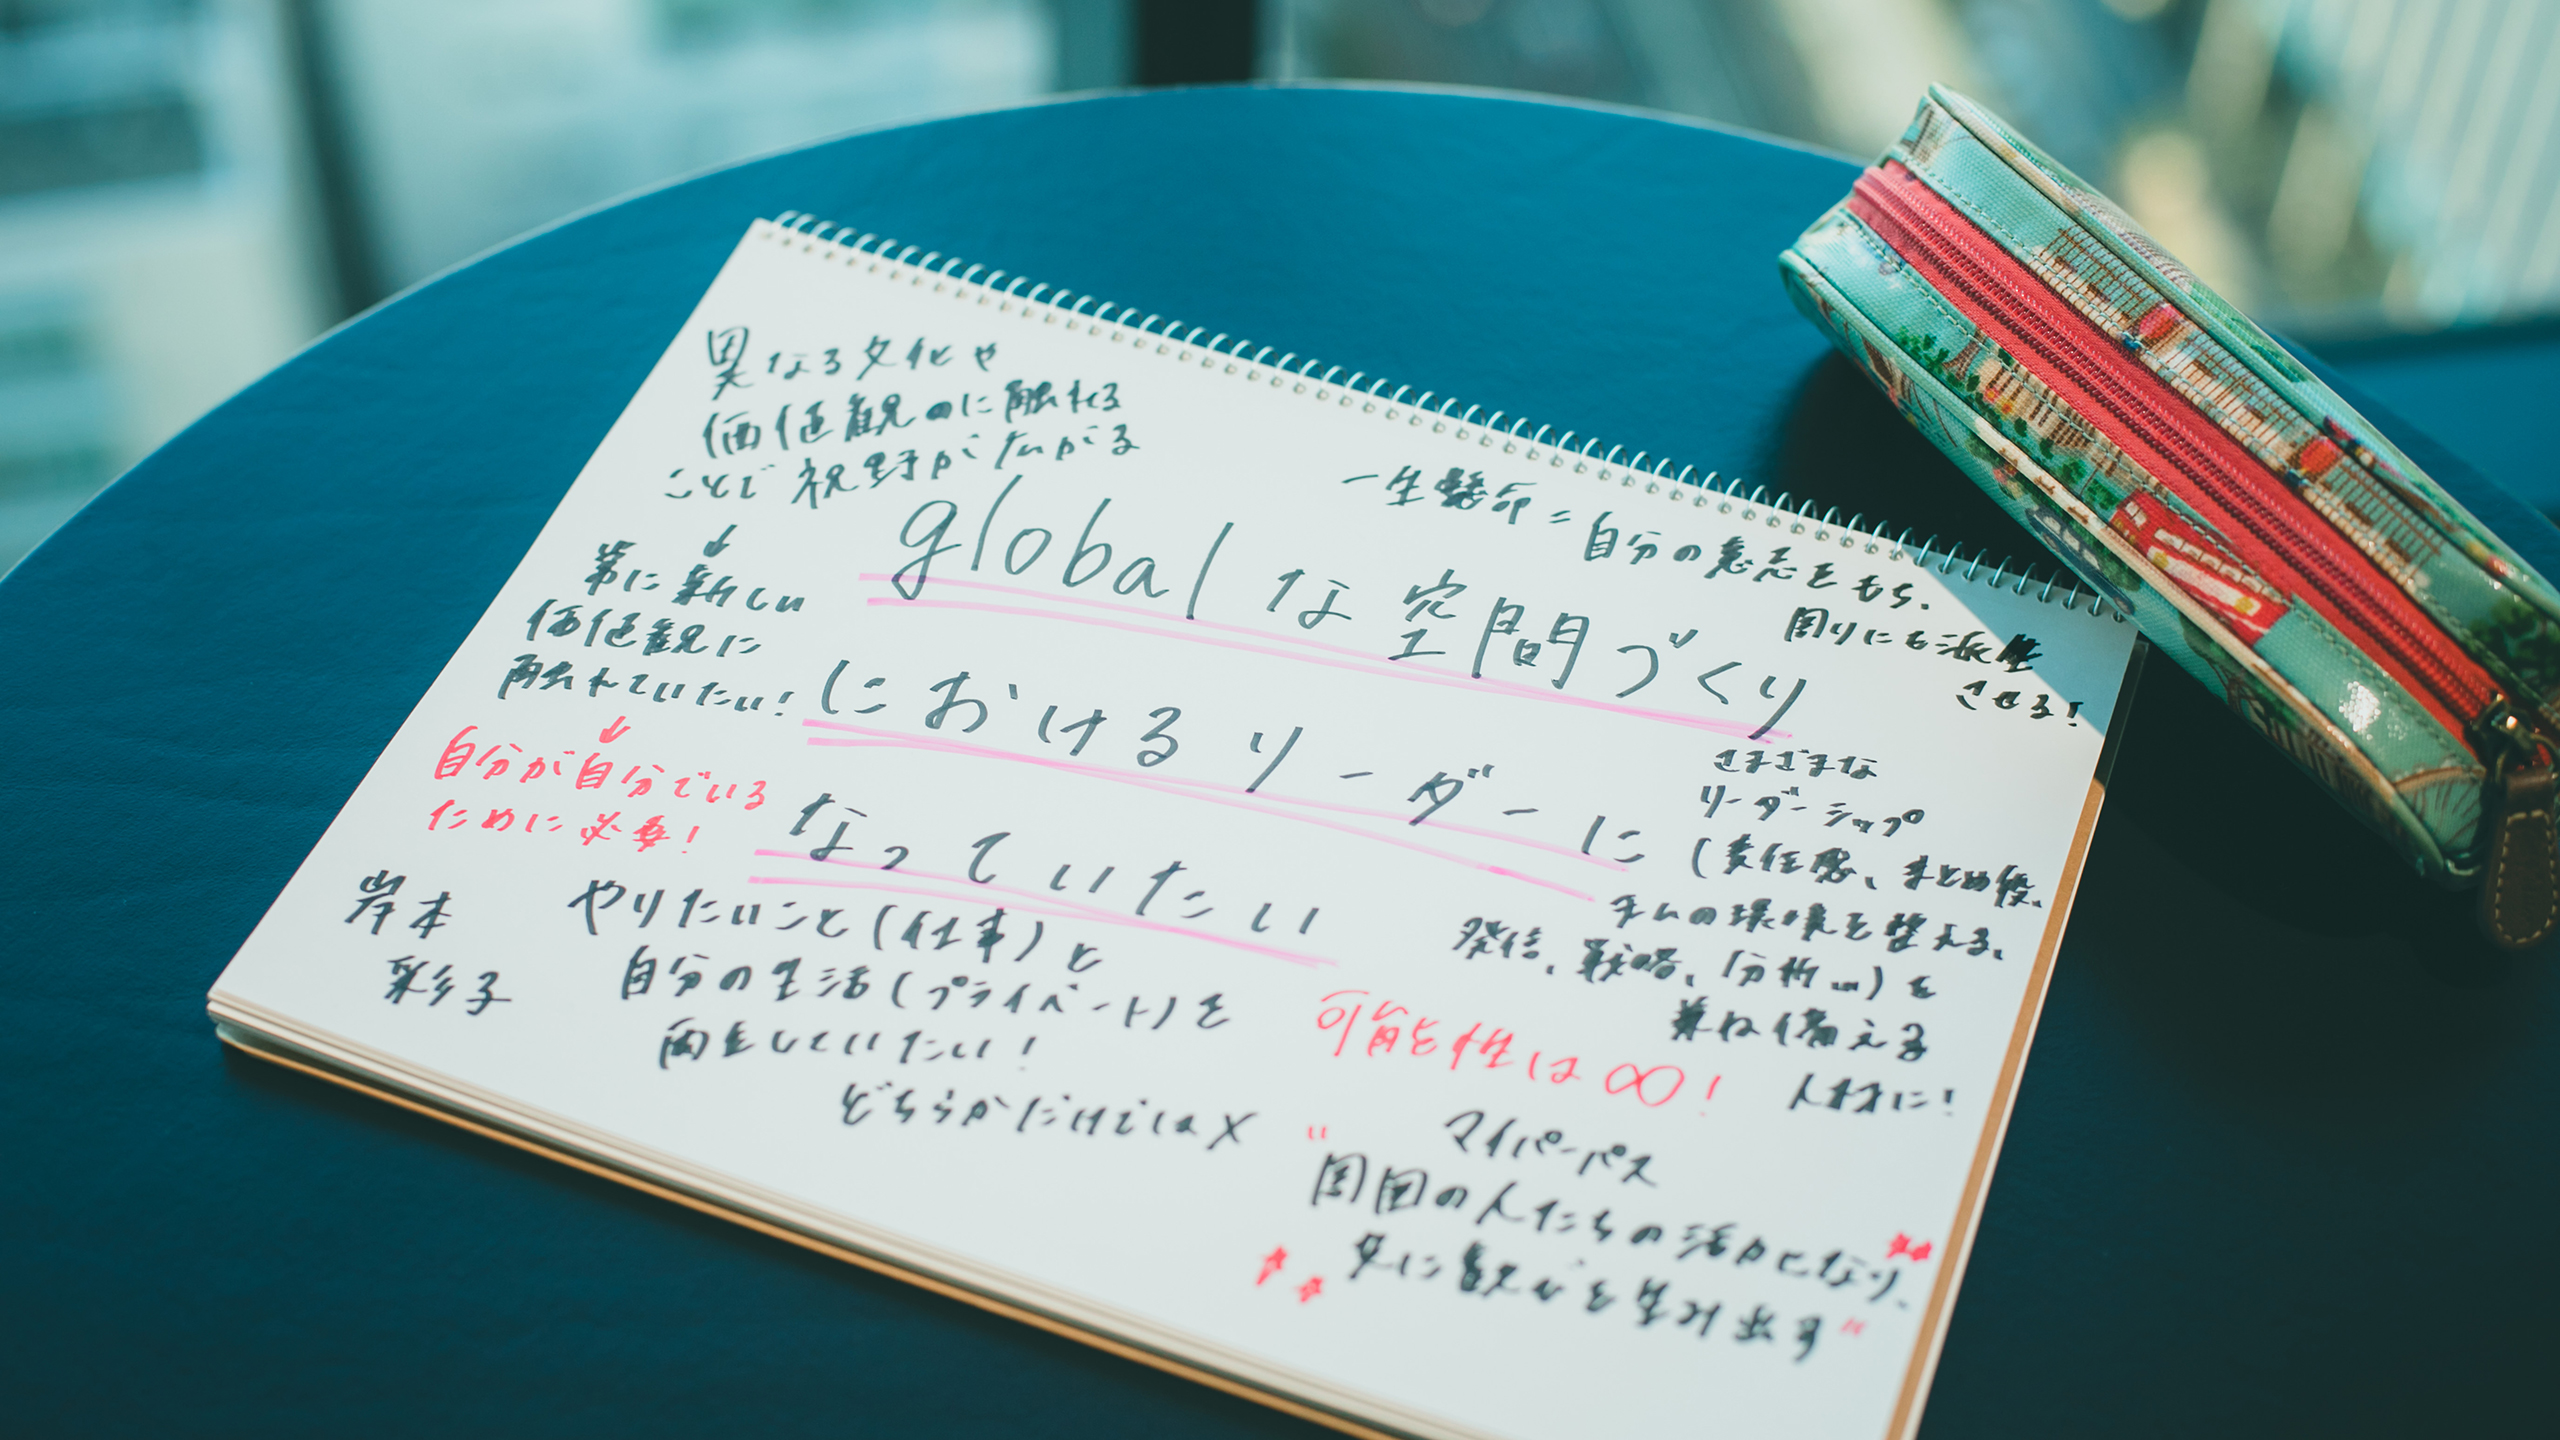 異なる文化や
価値観のに触れる
ことで視野が広がる
↓
常に新しい
価値観に
触れていたい!
↓
自分が自分でいる
ために必要!
globalな空間づくり
におけるリーダーに
なっていたい
一生懸命=自分の意志をもち、
周りにも派生
させる!
さまざまな
リーダーシップ
(責任感、まとめ役、
チームの環境を整える、
発信、戦略、分析…)を
兼ね備える
人材に!
可能性は∞!
岸本
彩子
やりたいこと(仕事)と
自分の生活(プライベート)を
両立していたい!
どちらかだけではX
マイパーパス
"周囲の人たちの活力となり、
を生み出す"